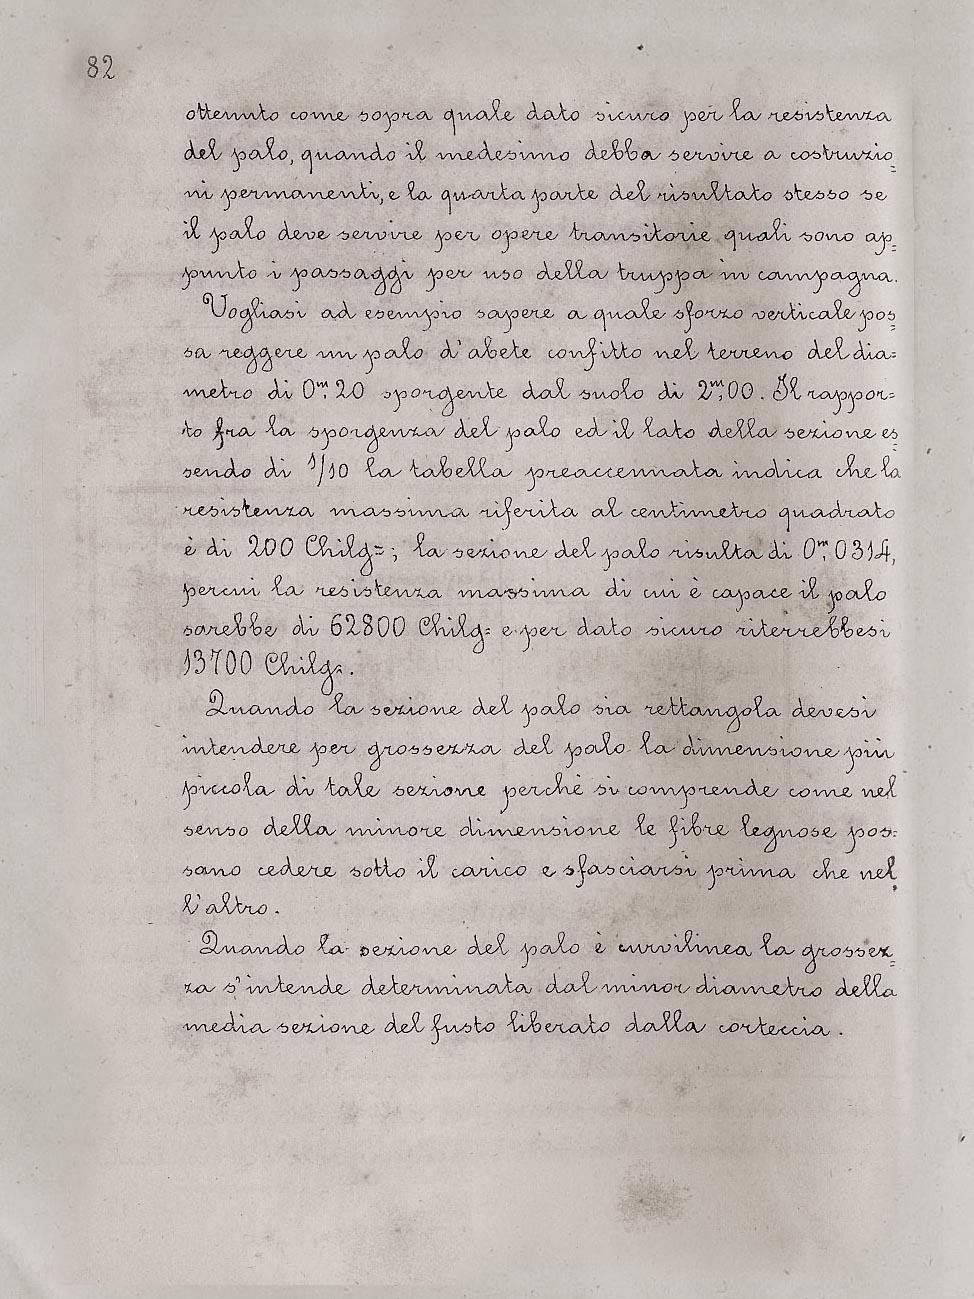 82
ottenuto come sopra quale dato sicuro per la resistenza
del palo, quando il medesimo debba servire a costruzio=
ni permanenti, e la quarta parte del risultato stesso se
il palo deve servire per opere transitorie quali sono ap=
punto i passaggi per uso della truppa in campagna.
Vogliasi ad esempio sapere a quale sforzo verticale pos=
sa reggere un palo d'abete confitto nel terreno del dia=
metro di 0.ᵐ20 sporgente dal suolo di 2ᵐ,00. Il rappor=
to fra la sporgenza del palo ed il lato della sezione es=
sendo di 1/10 la tabella preaccennata indica che la
resistenza massima riferita al centimetro quadrato
è di 200 Chilg=; la sezione del palo risulta di 0.ᵐ0314,
percui la resistenza massima di cui è capace il palo
sarebbe di 62800 Chilg= e per dato sicuro riterrebbesi
13700 Chilg=.
Quando la sezione del palo sia rettangola devesi
intendere per grossezza del palo la dimensione più
piccola di tale sezione perchè si comprende come nel
senso della minore dimensione le fibre legnose pos=
sano cedere sotto il carico e sfasciarsi prima che nel
l'altro.
Quando la sezione del palo è curvilinea la grossez=
za s'intende determinata dal minor diametro della
media sezione del fusto liberato dalla corteccia.